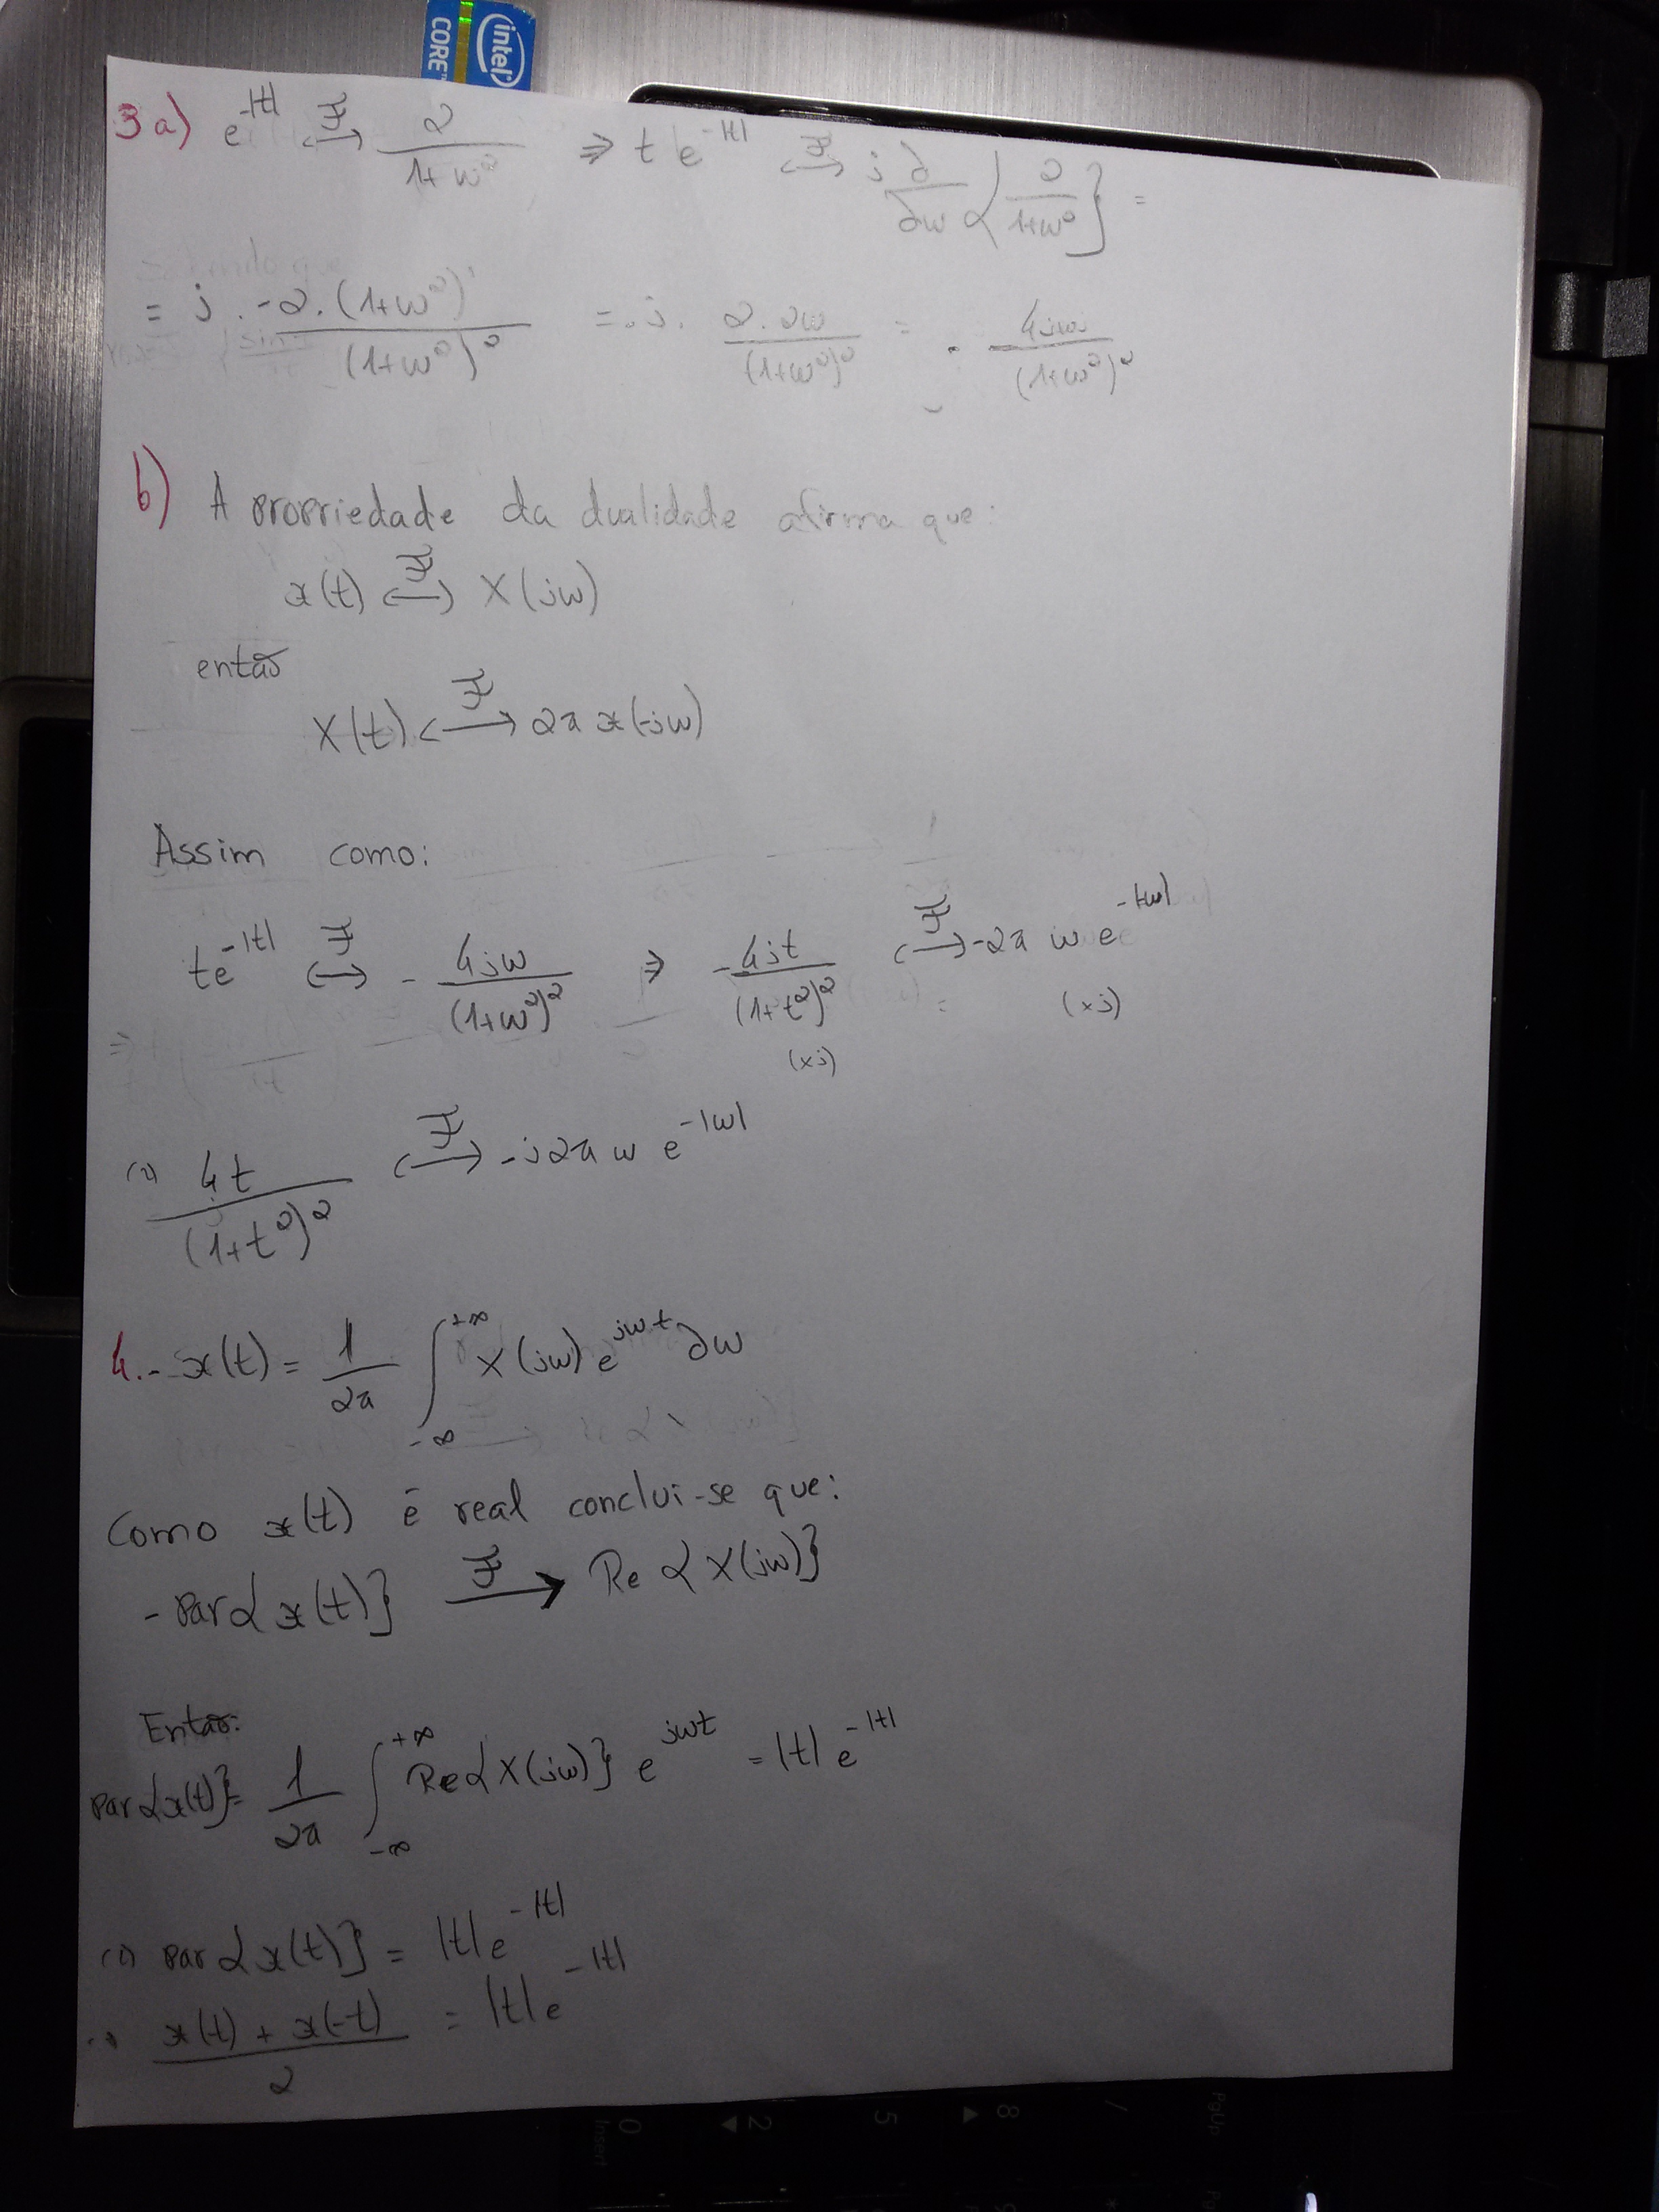 intel CORE™
3 a) e^{-|t|} ⟷^{ℱ} 2/(1+ω²) ⇒ t e^{-|t|} ⟷^{ℱ} j ∂/∂ω {2/(1+ω²)} =
= j · -2·(1+ω²)'/(1+ω²)² = -j · 2·2ω/(1+ω²)² = - 4jω/(1+ω²)²
b) A propriedade da dualidade afirma que:
x(t) ⟷^{ℱ} X(jω)
então
X(t) ⟷^{ℱ} 2π x(-jω)
Assim como:
te^{-|t|} ⟷^{ℱ} - 4jω/(1+ω²)² ⇒ -4jt/(1+t²)² ⟷^{ℱ} -2π ω e^{-|ω|}
(xj) (xj)
(=) 4t/(1+t²)² ⟷^{ℱ} -j2π ω e^{-|ω|}
4.- x(t) = 1/2π ∫_{-∞}^{+∞} X(jω) e^{jωt} ∂ω
Como x(t) é real conclui-se que:
- Par{x(t)} ⟶^{ℱ} Re{X(jω)}
Então:
Par{x(t)} = 1/2π ∫_{-∞}^{+∞} Re{X(jω)} e^{jωt} = |t| e^{-|t|}
(=) Par{x(t)} = |t|e^{-|t|}
(=) x(t) + x(-t)/2 = |t|e^{-|t|}
0 2 5 8 /
Insert ▼ ▲ PgUp